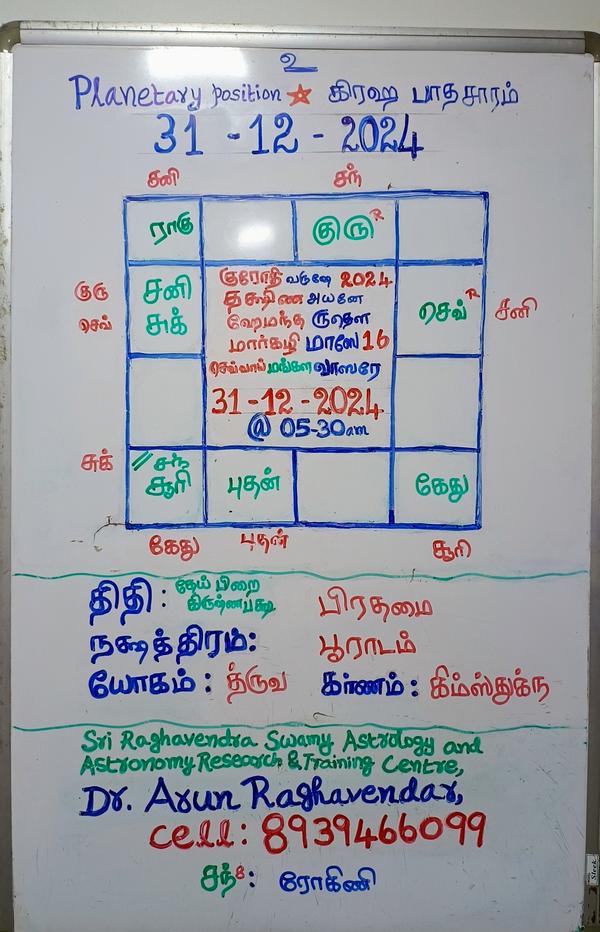 உ
Planetary position ☆ கிரஹ பாதசாரம்
31-12-2024
சனி சந்
ராகு குரு R
குரு
செவ்
சனி
சுக்
குரோதி வருஷே 2024
தக்ஷிண அயனே
ஹேமந்த ருதௌ
மார்கழி மாஸே 16
செவ்வாய் மங்கள வாஸரே
31-12-2024
@ 05-30am
செவ் R
சனி
சுக்
// சந்
சூரி
புதன்
கேது
கேது புதன் சூரி
திதி: தேய் பிறை
கிருஷ்ணபக்ஷ
பிரதமை
நக்ஷத்திரம்: பூராடம்
யோகம்: த்ருவ கரணம்: கிம்ஸ்துக்ந
Sri Raghavendra Swamy Astrology and
Astronomy Research & Training Centre,
Dr. Arun Raghavendar,
cell: 8939466099
சந் 8: ரோகிணி